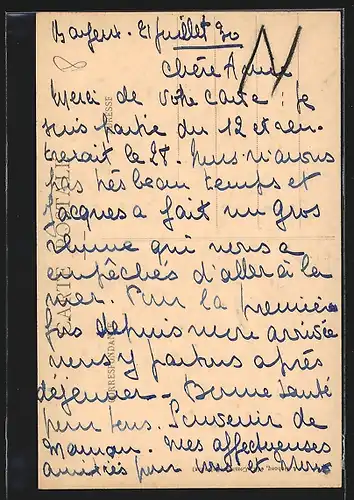 21 juillet 30
Chère Amie
Merci de votre carte : je
suis partie du 12 et ren-
trerait le 28. Nous n'avons
pas très beau temps et
Jacques a fait un gros
rhume qui nous a
empêchés d'aller à la
mer. Pour la première
fois depuis notre arrivée
nous y partons après
déjeuner - Bonne Santé
pour tous. Souvenir de
Maman. Mes affectueuses
amitiés pour vous et
CARTE POSTALE
CORRESPONDANCE
ADRESSE